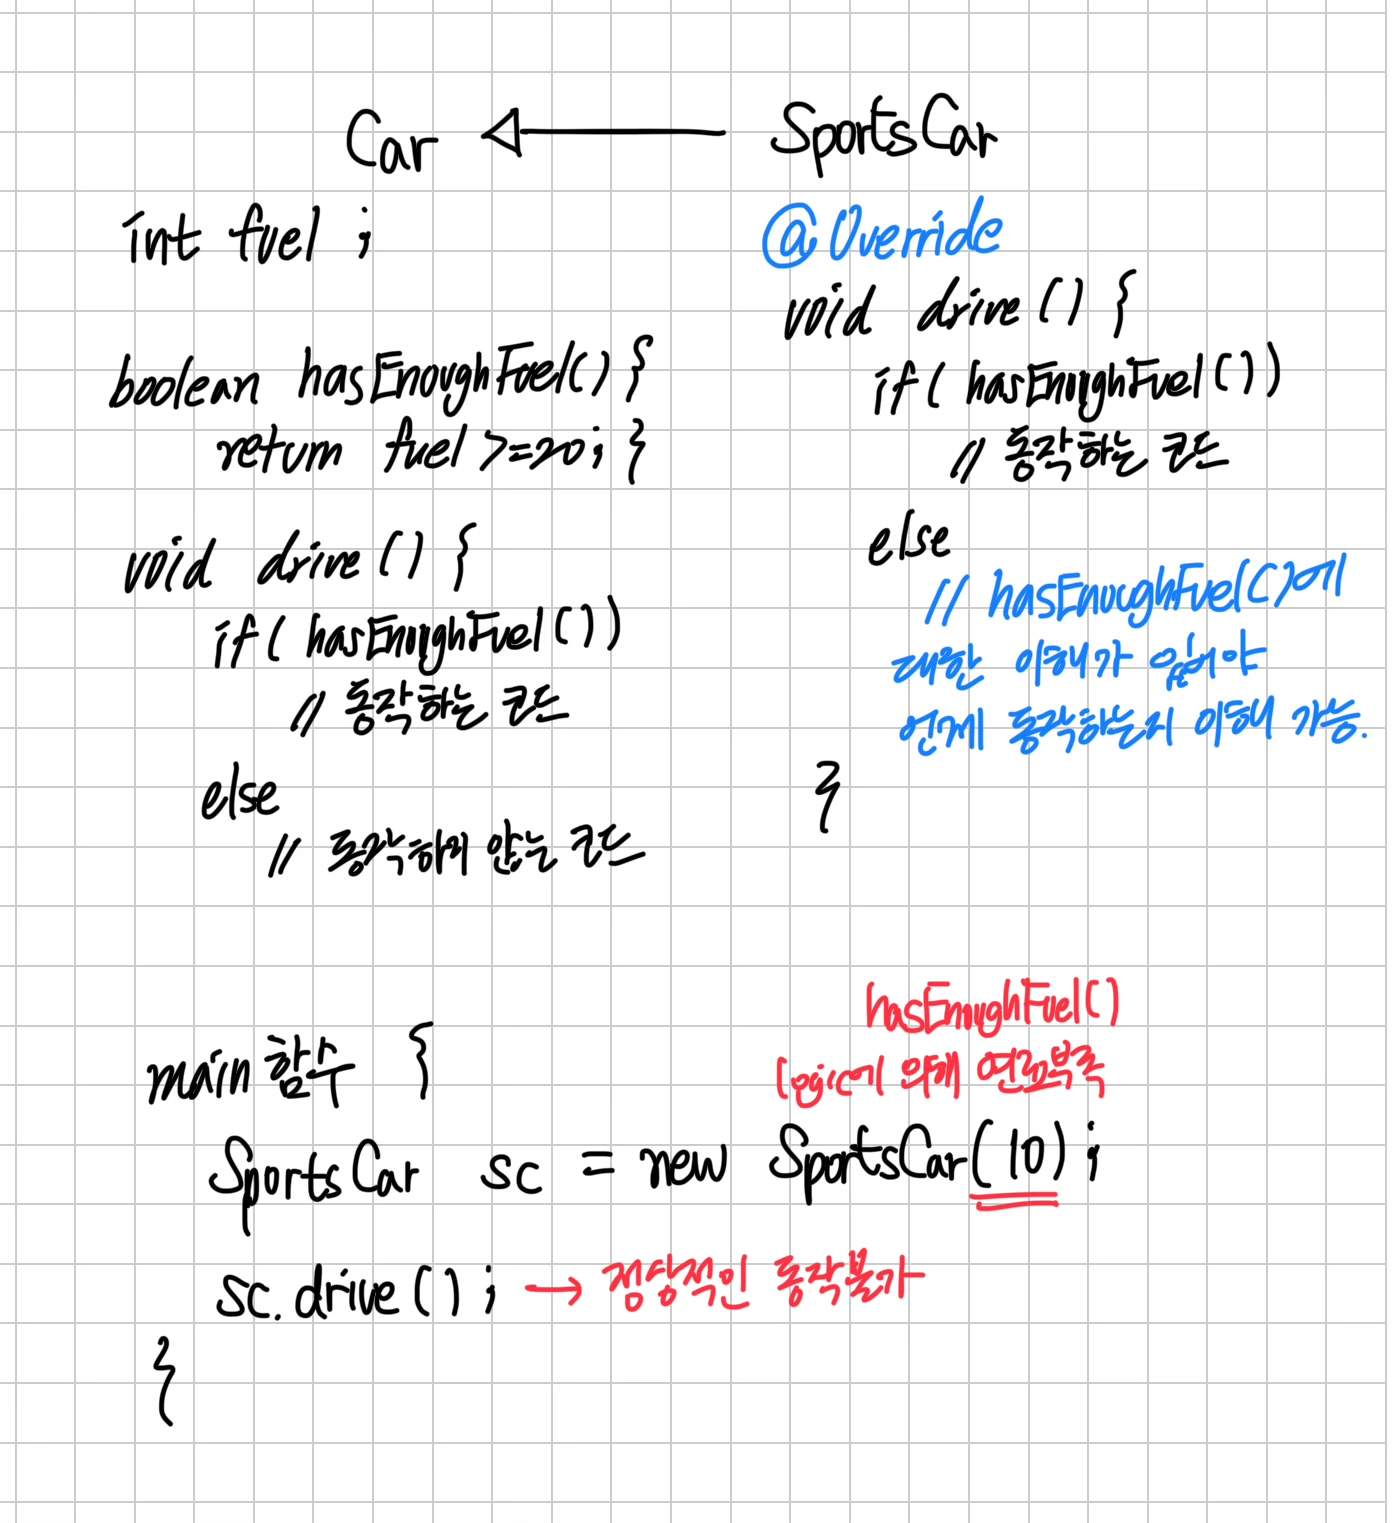 Car
int fuel ;
boolean hasEnoughFuel() {
return fuel >=20; }
void drive () {
if( hasEnoughFuel())
// 동작하는 코드
else
// 동작하지 않는 코드
SportsCar
@Override
void drive () {
if( hasEnoughFuel())
// 동작하는 코드
else
// hasEnoughFuel()에
대한 이해가 있어야
언제 동작하는지 이해 가능.
}
main 함수 {
hasEnoughFuel()
logic에 의해 연료부족
SportsCar sc = new SportsCar(10);
sc.drive(); → 정상적인 동작불가
}